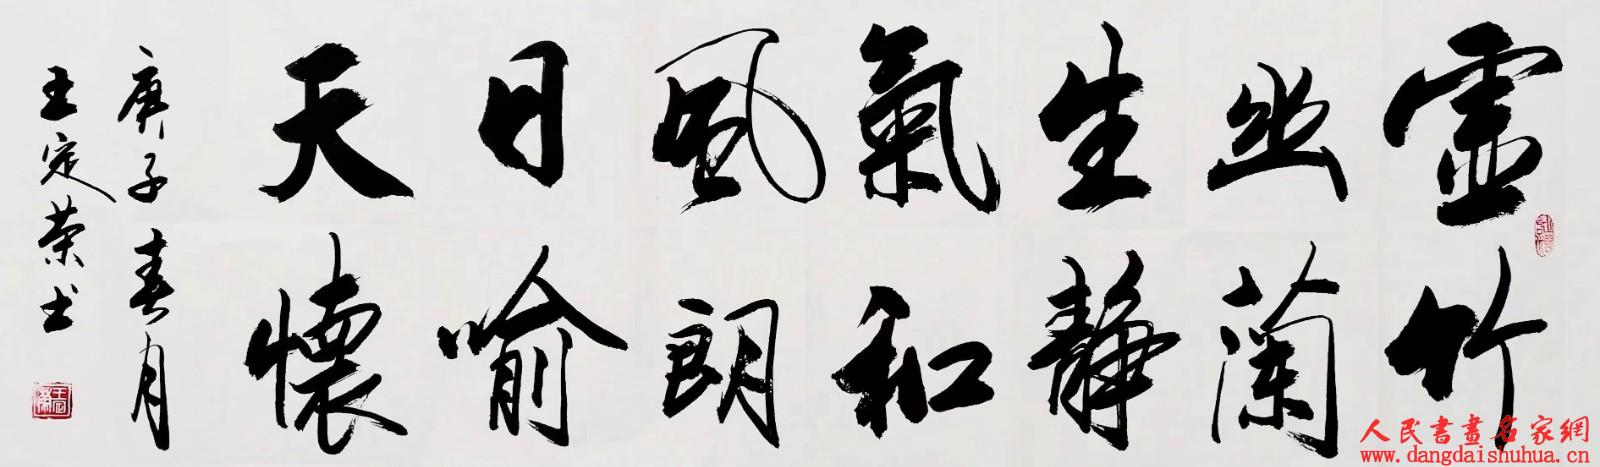 虚竹
幽蘭
生靜
氣和
風朗
日喻
天懷
庚子春月
王定荣书
人民書畫名家網
www.dangdaishuhua.cn